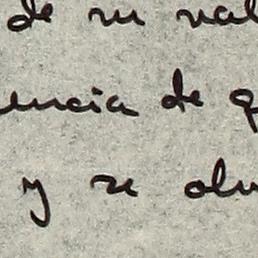 de su val
uencia de q
y se olv